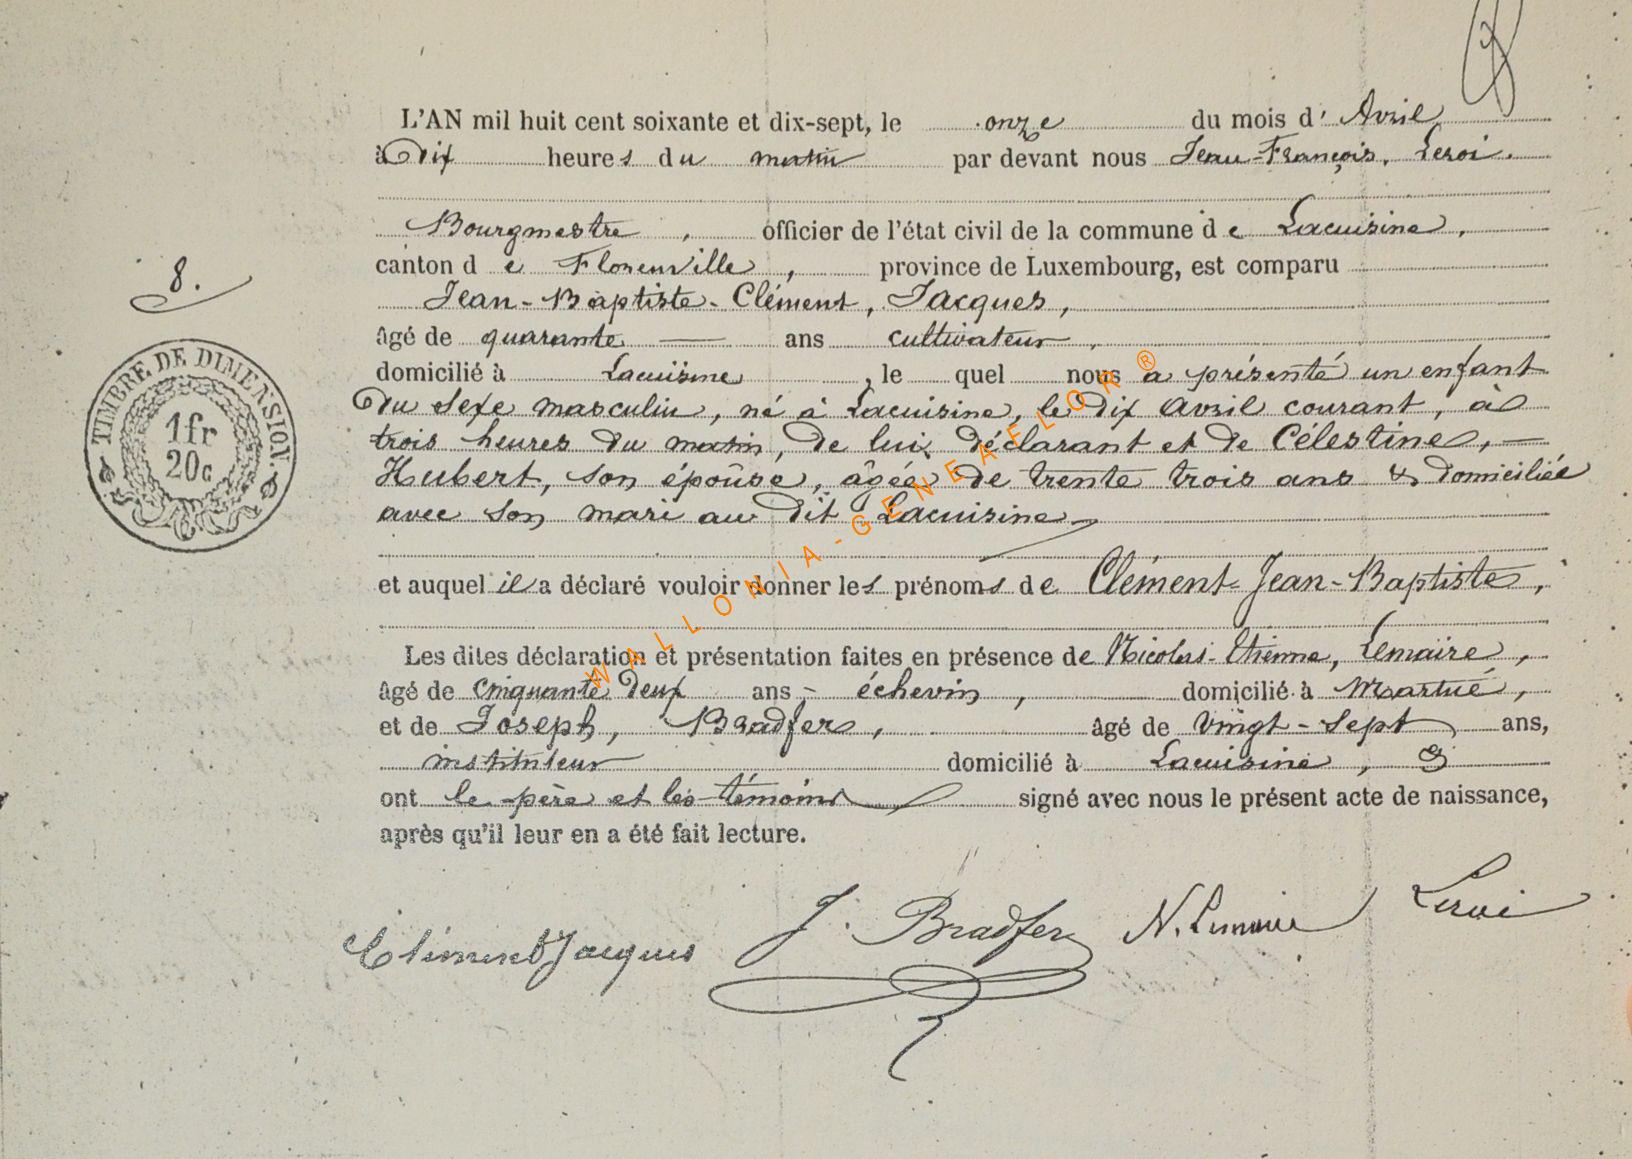 L'AN mil huit cent soixante et dix-sept, le onze du mois d' Avril
à Dix heures du matin par devant nous Jean-François, Leroi.
Bourgmestre, officier de l'état civil de la commune de Lacuisine,
canton de Florenville, province de Luxembourg, est comparu
Jean-Baptiste-Clément, Jacques,
âgé de quarante — ans cultivateur,
domicilié à Lacuisine, le quel nous a présenté un enfant
Du Sexe masculin, né à Lacuisine, le Dix Avril courant, à
trois heures du matin, De lui déclarant et de Célestine, —
Hubert, son épouse, âgée de trente trois ans & domiciliée
avec son mari au dit Lacuisine
et auquel il a déclaré vouloir donner les prénoms de Clément-Jean-Baptiste,
Les dites déclaration et présentation faites en présence de Nicolas-Etienne, Lemaire,
âgé de Cinquante Deux ans, échevin, domicilié à Martué,
et de Joseph, Bradfer, âgé de Vingt-Sept ans,
instituteur domicilié à Lacuisine,
ont le père et les témoins signé avec nous le présent acte de naissance,
après qu'il leur en a été fait lecture.
Clément Jacques J. Bradfer N. Lemaire Leroi
8.
TIMBRE DE DIMENSION.
1 fr
20 c
WALLONIA-GENEAELOR®